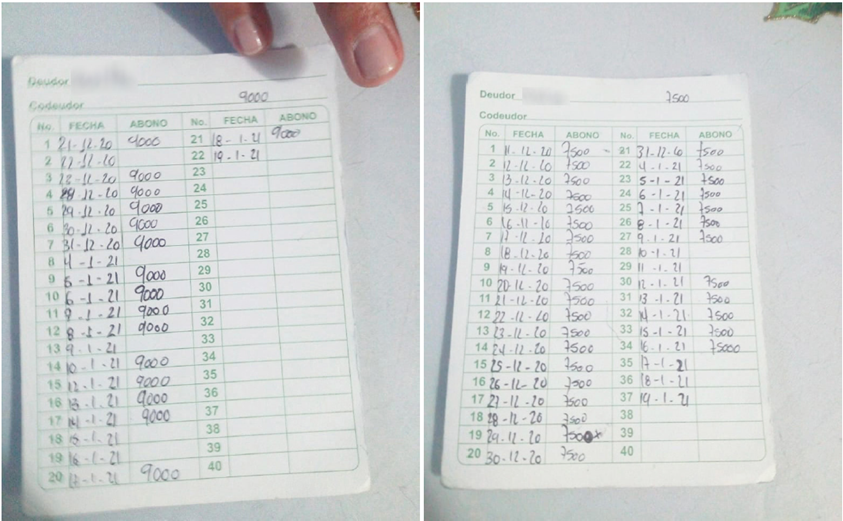 Deudor
Codeudor 9000
No. FECHA ABONO No. FECHA ABONO
1 21-12-20 9000 21 18-1-21 9000
2 22-12-20 22 19-1-21
3 22-12-20 9000 23
4 28-12-20 9000 24
5 29-12-20 9000 25
6 30-12-20 9000 26
7 31-12-20 9000 27
8 4-1-21 28
9 5-1-21 9000 29
10 6-1-21 9000 30
11 7-1-21 9000 31
12 8-1-21 9000 32
13 9-1-21 33
14 10-1-21 9000 34
15 12-1-21 9000 35
16 13-1-21 9000 36
17 14-1-21 9000 37
18 15-1-21 38
19 16-1-21 39
20 17-1-21 9000 40
Deudor 7500
Codeudor
No. FECHA ABONO No. FECHA ABONO
1 11-12-20 7500 21 31-12-20 7500
2 12-12-20 7500 22 4-1-21 7500
3 13-12-20 7500 23 5-1-21 7500
4 14-12-20 7500 24 6-1-21 7500
5 15-12-20 7500 25 7-1-21 7500
6 16-12-20 7500 26 8-1-21 7500
7 17-12-20 7500 27 9-1-21 7500
8 18-12-20 7500 28 10-1-21
9 19-12-20 7500 29 11-1-21
10 20-12-20 7500 30 12-1-21 7500
11 21-12-20 7500 31 13-1-21 7500
12 22-12-20 7500 32 14-1-21 7500
13 23-12-20 7500 33 15-1-21 7500
14 24-12-20 7500 34 16-1-21 75000
15 25-12-20 7500 35 17-1-21
16 26-12-20 7500 36 18-1-21
17 27-12-20 7500 37 19-1-21
18 28-12-20 7500 38
19 29-12-20 7500x 39
20 30-12-20 7500 40